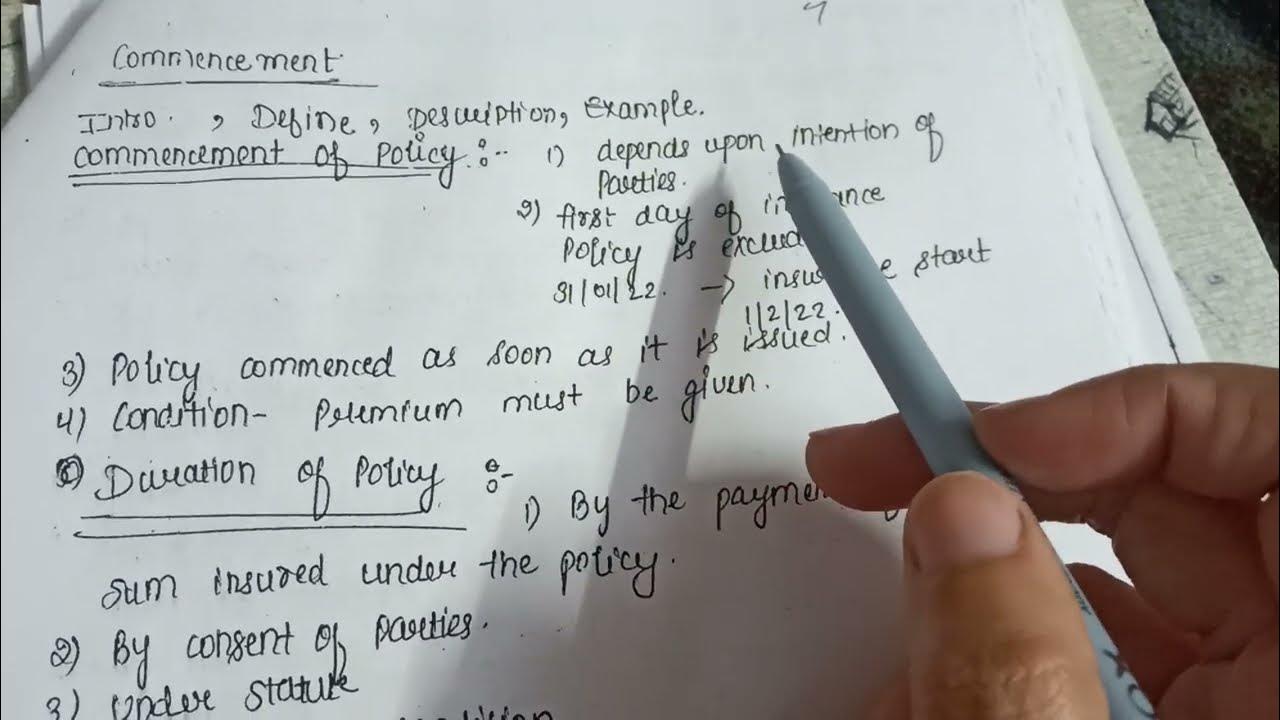 Commencement
Intro. , Define, Description, Example.
Commencement of Policy :-- 1) depends upon intention of
Parties.
2) first day of
Policy is
31/01/22. -> start
1/2/22.
3) Policy commenced as soon as it is issued.
4) Condition- Premium must be given.
Duration of Policy :-
1) By the
sum insured under the policy.
2) By consent of parties.
3) Under statute